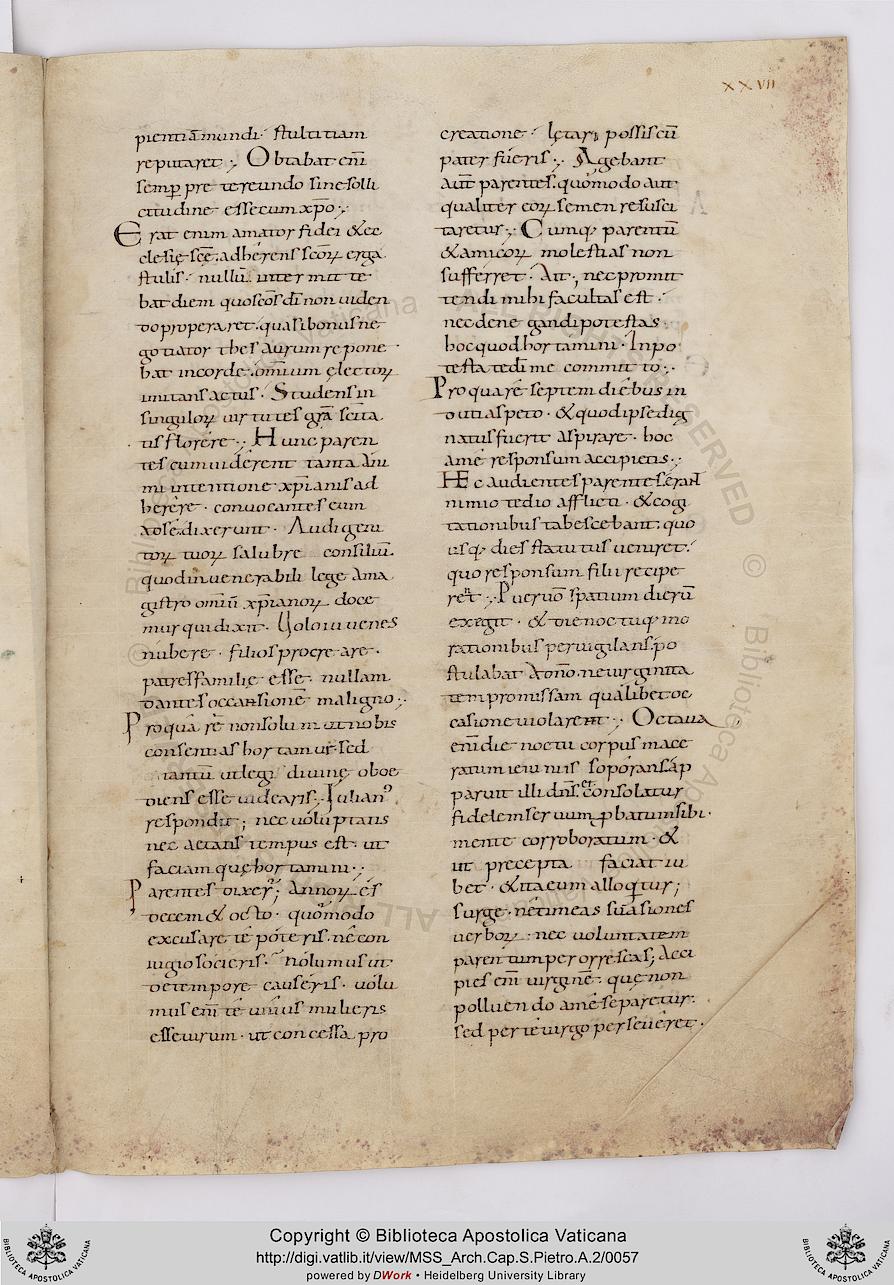 XXVII
pientiā mundi · stultitiam
reputaret ·, Obtabat eni̅
semp̲ pretereundo sine solli
citudine esse cum xp̅o ·,
Erat enim amator fidei &ec
clesię sc̅ę · adherens sc̅oꝝ erga
stulis · nullū intermitte
bat diem quo sc̅os di̅ non uiden
do properaret · quasi bonus ne
gotiator thesaurum repone
bat in corde · omnium electoꝝ
imitans actus · Studens in
singuloꝝ uirtutes gr̅a scita
tis florere ·, Hunc paren
tes cum uiderent tanta ani
mi intentione xp̅ianis ad
herere · conuocantes eum
ad se · dixerunt · Audi geni
toꝝ tuoꝝ salubre consiliū ·
quod in uenerabili lege a ma
gistro omniū xp̅ianoꝝ doce
mur qui dixit · Uolo iuuenes
nubere · filios procreare ·
patresfamilię esse · nullam
dantes occansionē maligno ·,
Pro qua re non solum ut nobis
consentias hortamur · sed
tantū ut legi diuinę oboe
diens esse uidearis ·, Iulian᾽
respondit ; nec uoluptatis
nec aetatis tempus est · ut
faciam quę hortamini ·,
Parentes dixer̅ ; Annoꝝ es
decem & octo · quomodo
excusare te poteris · ne con
iugio socieris · nolumus ut
de tempore causeris · uolu
mus eni̅ te unius mulieris
esse uirum · ut concessa pro
creatione · lętaꝶ possis cū
pater fueris ·, Agebant
aut̅ parentes · quomodo aut
qualiter eoꝝ semen resusci
taretur ·, Cumq; parentū
& amicoꝝ molestias non
sufferret · Ait ; nec promit
tendi mihi facultas est ·
nec denegandi potestas
hoc quod hortamini · In po
testate di̅ me committo ·,
Pro qua re septem diebus in
dutias peto · & quod ipse dig
natus fuerit aspirare · hoc
a me responsum accipietis ·,
Hec audientes parentes erant
nimio tedio afflicti · & cogi
tationibus tabescebant · quo
usq; dies statutus ueniret ·
quo responsum filii recipe
rent ·, Puer uō spatium dierū
exegit · & die noctuq; in o
rationibus peruigilans po
stulabat a dn̅o · ne uirginita
tem promissam qualibet oc
casione uiolaret ·, Octaua
eni̅ die noctu corpus mace
ratum ieiuniis soporans ap
paruit illi dn̅s · et consolatur
fidelem seruum p̲batum sibi ·
mente corroboratum · &
ut precepta faciat iu
bet · & ita eum alloq̅tur ;
surge · ne timeas suasiones
uerboꝝ · nec uoluntatem
parentum perorrescas ; Acci
pies eni̅ uirginē · quę non
polluendo a me separetur ·
sed per te uirgo perseueret ·
Copyright © Biblioteca Apostolica Vaticana
http://digi.vatlib.it/view/MSS_Arch.Cap.S.Pietro.A.2/0057
powered by DWork • Heidelberg University Library
BIBLIOTECA APOSTOLICA VATICANA
BIBLIOTECA APOSTOLICA VATICANA